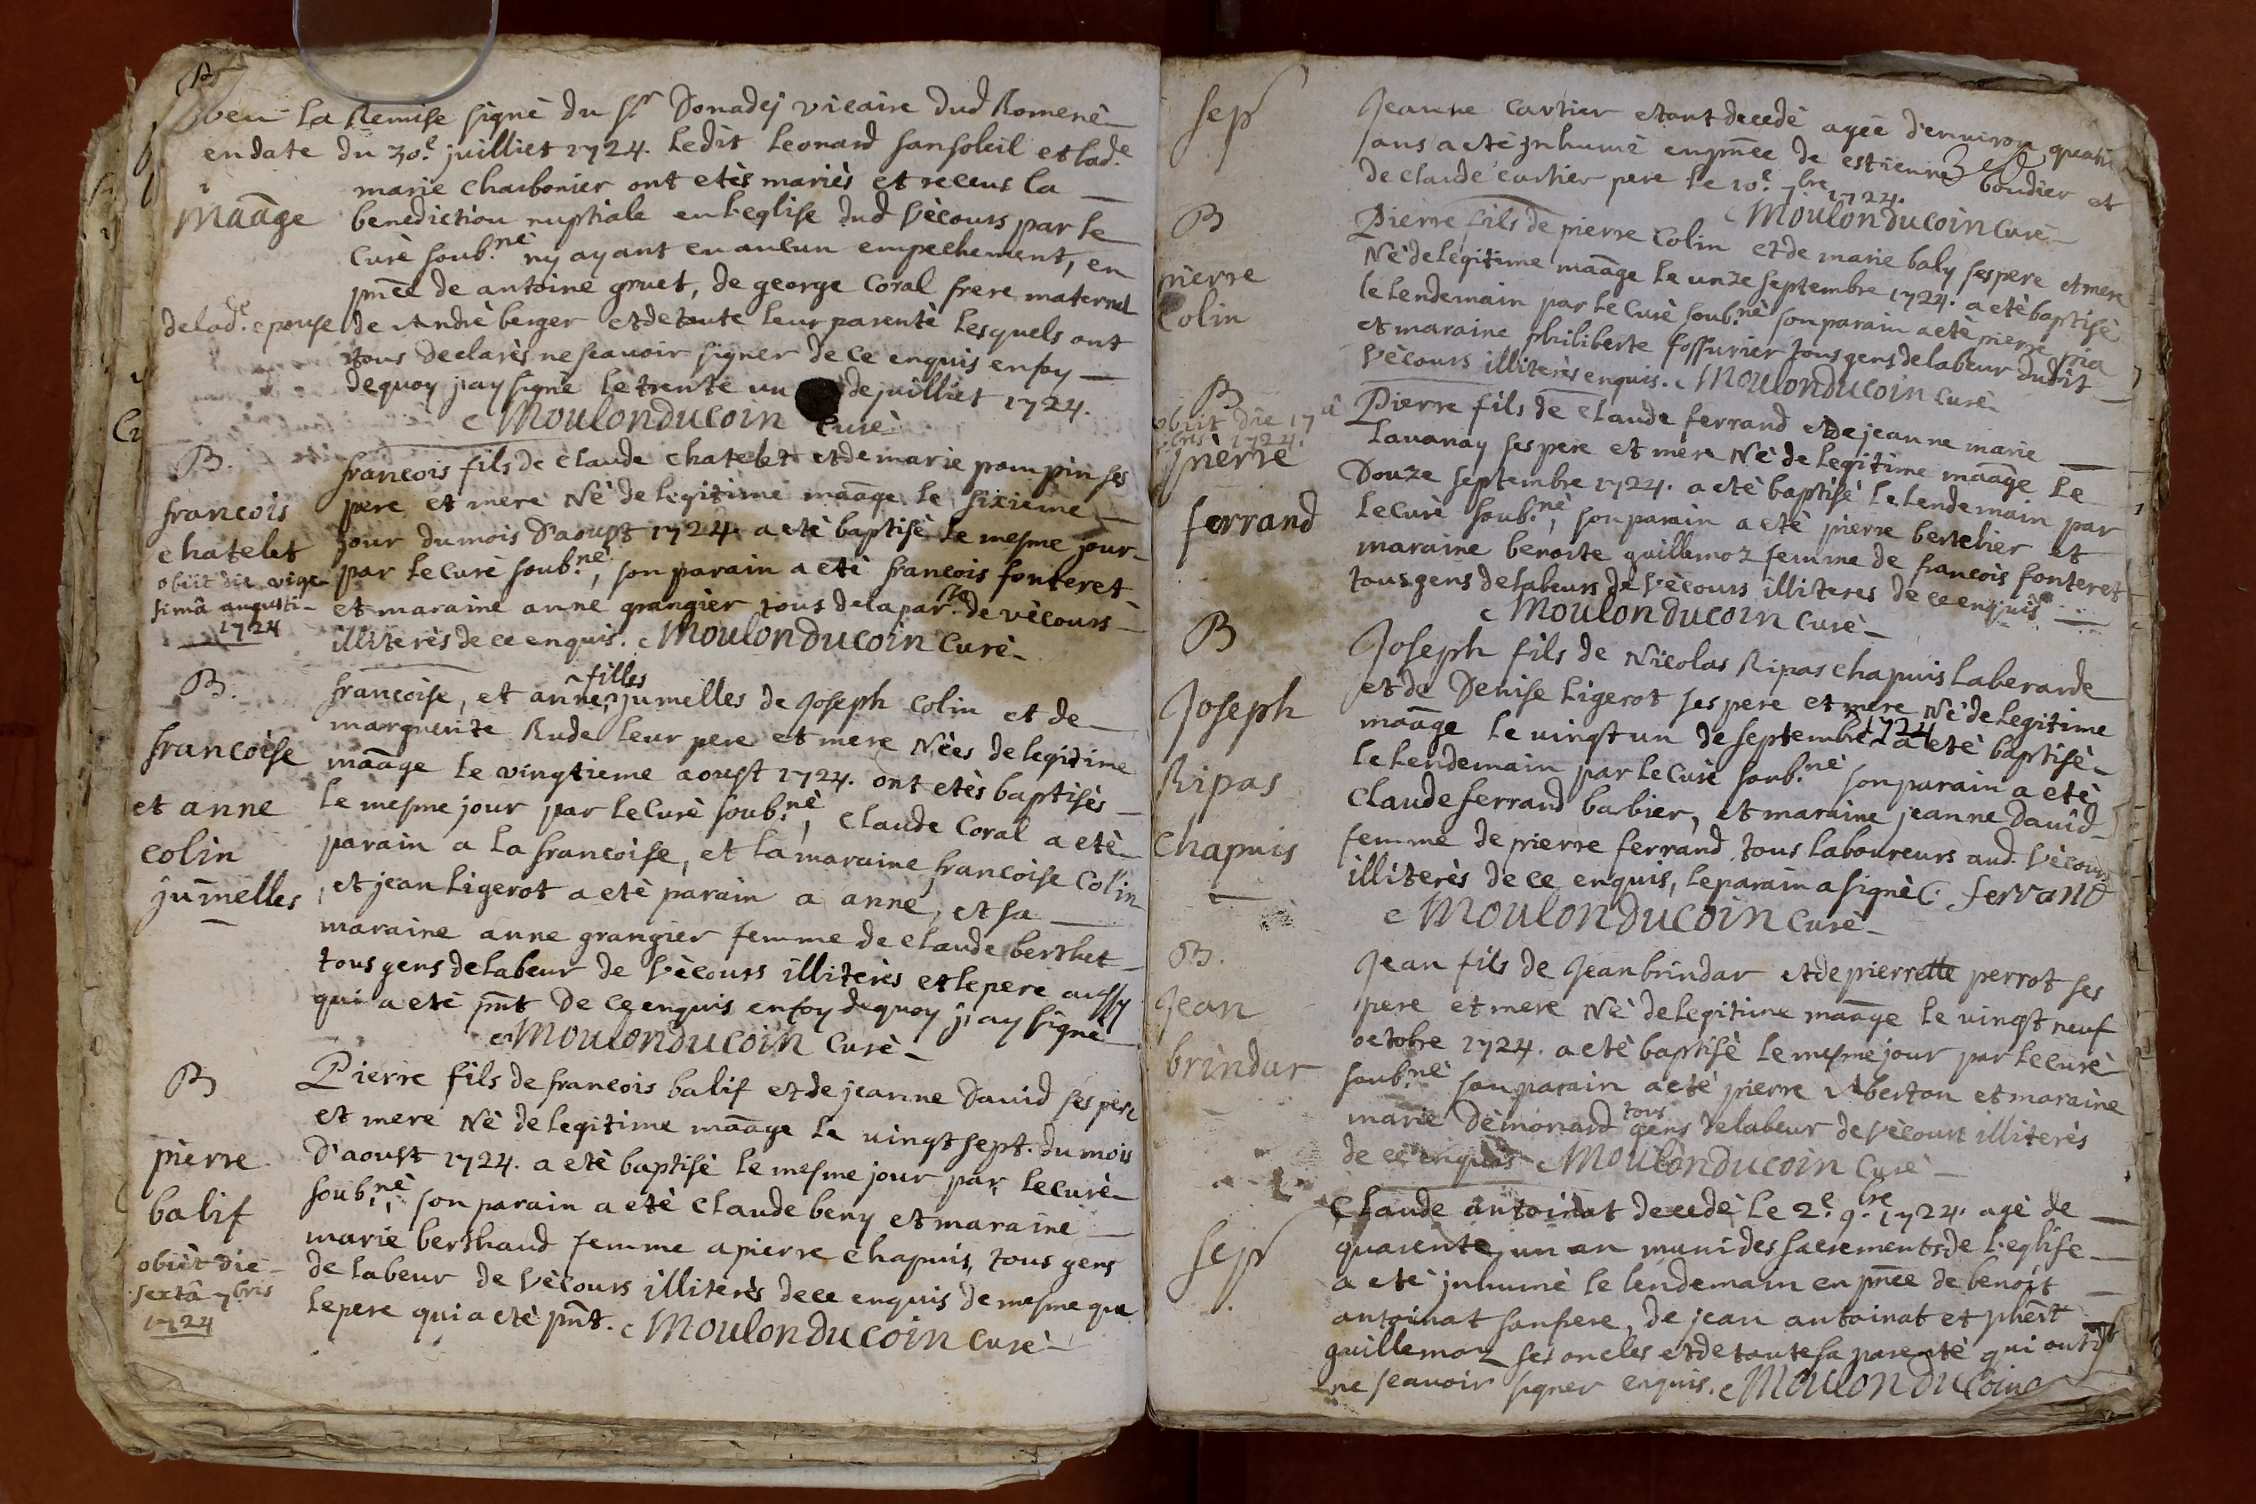 veu La Remise signè du Sr Donadej vicaire dud Romenè
en date du 30.e juilliet 1724. Ledit Leonard sansoleil et lad.e
marie charbonier ont etès mariès et recus la
maâge
benediction nuptiale en l'eglise dud Vècours par le
Curè soub.nè ny ayant eu aucun empechement, en
pnce de antoine gruet, de george Coral frere maternel
de lad.e epouse de Andrè berger et de toute leur parentè Lesquels ont
tous declarès ne scavoir signer de ce enquis en foy
de quoy j'ay signè le trente un de juilliet 1724.
Moulonducoin Curè
B.
francois
chatelet
obiit die vige-
simâ augusti
1724
francois fils de claude chatelet et de marie pompin ses
pere et mere Nè de legitime maâge le sixieme
jour du mois D'aoust 1724. a etè baptisè le mesme jour
par le Curè soub.nè, son parain a etè francois fonteret
et maraine anne grangier tous de la par.se de vècours
illiterès de ce enquis. Moulonducoin Curè
B.
francoise
et anne
colin
jumelles
francoise, et anne filles jumelles de Joseph Colin et de
marguerite Rude leur pere et mere Nèes de legitime
maâge le vingtieme aoust 1724. ont etès baptisès
le mesme jour par le Curè soub.nè, Claude Coral a etè
parain a la francoise, et la maraine francoise Colin
et jean Ligerot a etè parain a anne, et sa
maraine anne grangier femme de claude berthet
tous gens de labeur de Vècours illiterès et le pere aussy
qui a etè pnt de ce enquis en foy de quoy j'ay signè
Moulonducoin Curè
B
pierre
balif
obiit die
sextâ 7bris
1724
Pierre fils de francois balif et de jeanne David ses pere
et mere Nè de legitime maâge le vingt sept. du mois
D'aoust 1724. a etè baptisè le mesme jour par le curè
soub.nè, son parain a etè claude beny et maraine
marie berthaud femme a pierre chapuis, tous gens
de labeur de Vècours illiterès de ce enquis de mesme que
le pere qui a etè pnt. Moulonducoin Curè
sep
Jeanne Cartier etant decedè agèe d'environ quatre
ans a etè inhumè en pnce de estienne boudier et
de claude cartier pere le 10.e 7bre 1724.
Moulonducoin Curè
B
pierre
Colin
Pierre fils de pierre Colin et de marie baly ses pere et mere
Nè de legitime maâge le unze septembre 1724. a etè baptisè
le lendemain par le Curè soub.nè son parain a etè pierre pia
et maraine philiberte fossurier tous gens de labeur dudit
Vècours illiterès enquis. Moulonducoin Curè
B
obiit die 17â
1724.
pierre
ferrand
Pierre fils de claude ferrand et de jeanne marie
Lavanay ses pere et mere Nè de legitime maâge le
Douze septembre 1724. a etè baptisè le lendemain par
le curè soub.nè, son parain a etè pierre bertelier et
maraine benoite guillemoz femme de francois fonteret
tous gens de labeurs de Vècours illiteres de ce enquis
Moulonducoin Curè
B
Joseph
Ripas
Chapuis
Joseph fils de Nicolas Ripas chapuis laberarde
et de Denise Ligerot ses pere et mere Nè de legitime
maâge le vingt un de septembre 1724 a etè baptisè
le lendemain par le Curè soub.nè son parain a etè
claude ferrand barbier, et maraine jeanne David
femme de pierre ferrand tous laboureurs aud. Vècours
illiterès de ce enquis, le parain a signè C. ferrand
Moulonducoin Curè
B.
Jean
brindar
Jean fils de Jean brindar et de pierrette perrot ses
pere et mere Nè de legitime maâge le vingt neuf
octobre 1724. a etè baptisè le mesme jour par le curè
soub.nè son parain a etè pierre Aberton et maraine
marie Dèmonard tous gens de labeur de Vècours illiterès
de ce enquis Moulonducoin Curè
sep
Claude antoinat decedè le 2.e 9.bre 1724. agè de
quarente un an muni des sacrements de l'eglise
a etè inhumè le lendemain en pnce de benoit
antoinat son frere, de jean antoinat et phert
guillemoz ses oncles et de toute sa parentè qui ont dt
ne scavoir signer enquis. Moulonducoin